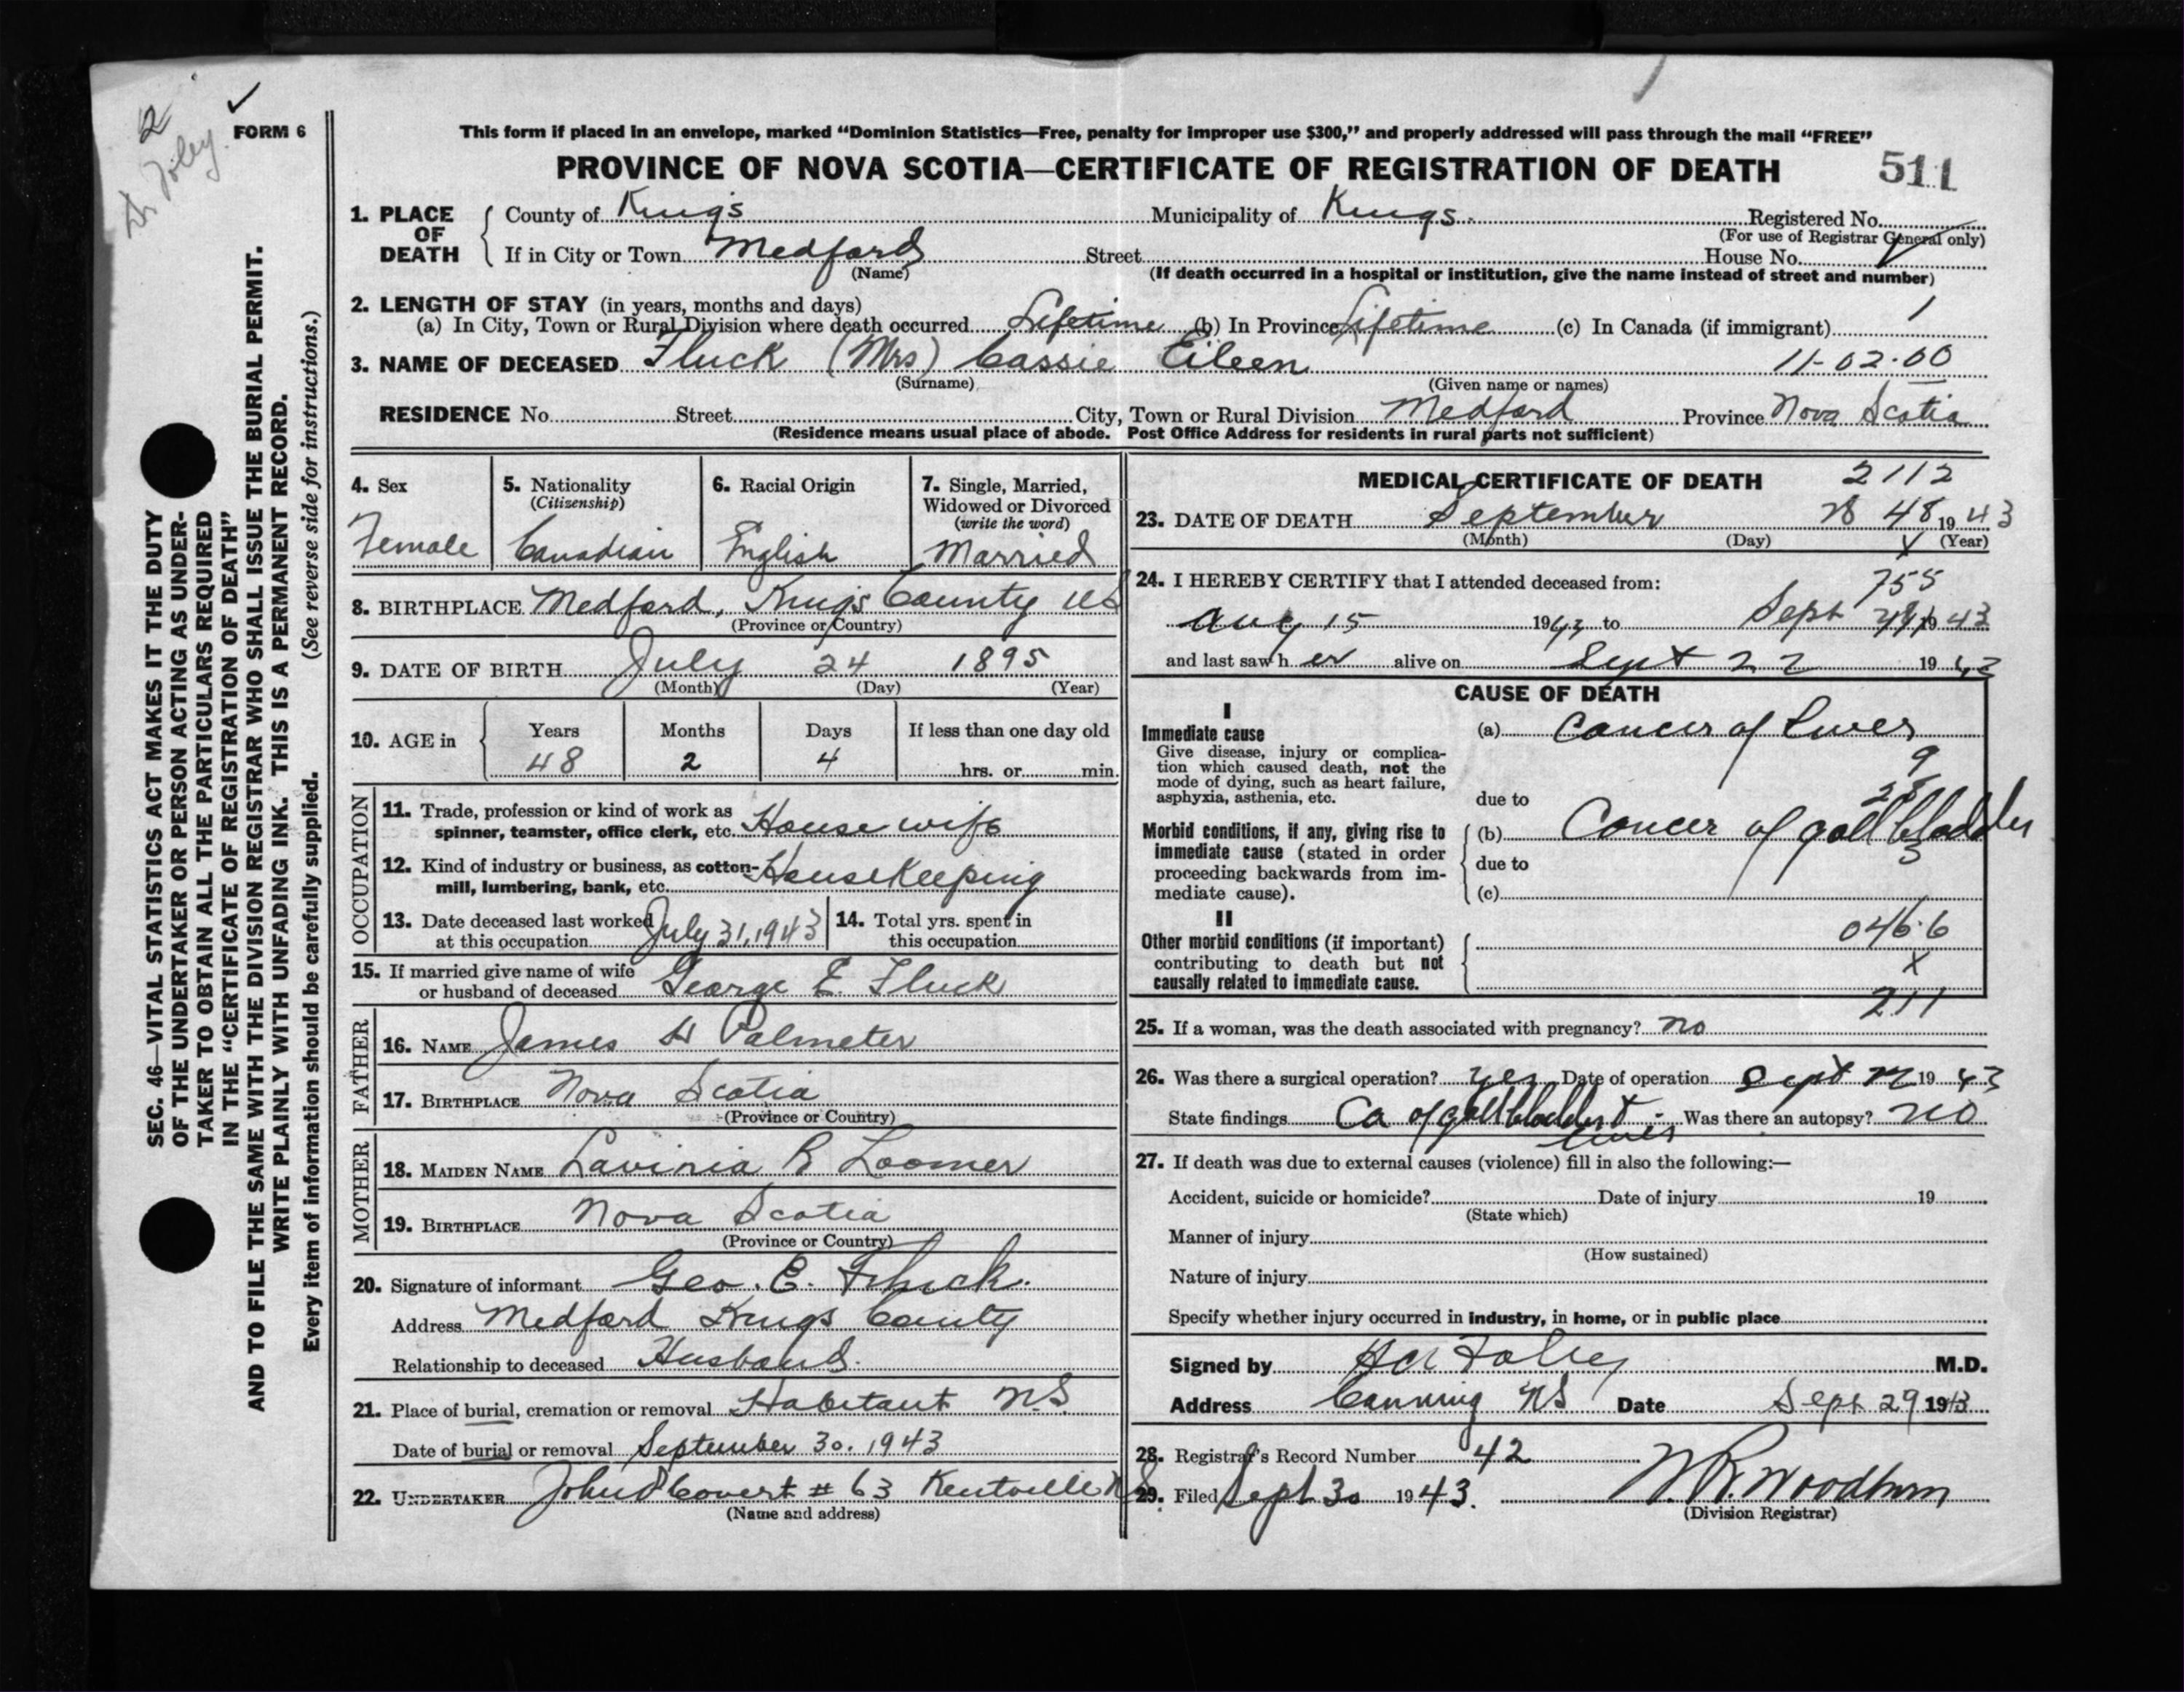 2
Dr Foley.
FORM 6
SEC. 46—VITAL STATISTICS ACT MAKES IT THE DUTY
OF THE UNDERTAKER OR PERSON ACTING AS UNDER-
TAKER TO OBTAIN ALL THE PARTICULARS REQUIRED
IN THE "CERTIFICATE OF REGISTRATION OF DEATH"
AND TO FILE THE SAME WITH THE DIVISION REGISTRAR WHO SHALL ISSUE THE BURIAL PERMIT.
WRITE PLAINLY WITH UNFADING INK. THIS IS A PERMANENT RECORD.
Every item of information should be carefully supplied. (See reverse side for instructions.)
This form if placed in an envelope, marked "Dominion Statistics—Free, penalty for improper use $300," and properly addressed will pass through the mail "FREE"
PROVINCE OF NOVA SCOTIA—CERTIFICATE OF REGISTRATION OF DEATH 511
1. PLACE OF DEATH
County of Kings Municipality of Kings. Registered No.
(For use of Registrar General only)
If in City or Town Medford Street House No.
(Name) (If death occurred in a hospital or institution, give the name instead of street and number)
2. LENGTH OF STAY (in years, months and days)
(a) In City, Town or Rural Division where death occurred Lifetime (b) In Province Lifetime (c) In Canada (if immigrant) 1
3. NAME OF DECEASED Fluck (Mrs) Cassie Eileen 11-02-00
(Surname) (Given name or names)
RESIDENCE No. Street City, Town or Rural Division Medford Province Nova Scotia
(Residence means usual place of abode. Post Office Address for residents in rural parts not sufficient)
4. Sex
Female
5. Nationality
(Citizenship)
Canadian
6. Racial Origin
English
7. Single, Married,
Widowed or Divorced
(write the word)
Married
8. BIRTHPLACE Medford, Kings County NS
(Province or Country)
9. DATE OF BIRTH July 24 1895
(Month) (Day) (Year)
10. AGE in
Years Months Days If less than one day old
48 2 4 hrs. or min.
OCCUPATION
11. Trade, profession or kind of work as
spinner, teamster, office clerk, etc. House wife
12. Kind of industry or business, as cotton-
mill, lumbering, bank, etc. Housekeeping
13. Date deceased last worked
at this occupation July 31, 1943
14. Total yrs. spent in
this occupation
15. If married give name of wife
or husband of deceased George E. Fluck
FATHER
16. NAME James H Palmeter
17. BIRTHPLACE Nova Scotia
(Province or Country)
MOTHER
18. MAIDEN NAME Lavinia R Loomer
19. BIRTHPLACE Nova Scotia
(Province or Country)
20. Signature of informant Geo. E. Fluck.
Address Medford Kings County
Relationship to deceased Husband.
21. Place of burial, cremation or removal Habitant N.S.
Date of burial or removal September 30. 1943
22. UNDERTAKER John D Covert # 63 Kentville NS.
(Name and address)
MEDICAL CERTIFICATE OF DEATH 2112
23. DATE OF DEATH September 28 48 1943
(Month) (Day) (Year)
24. I HEREBY CERTIFY that I attended deceased from:
755
Aug 15 1943 to Sept 1943
and last saw her alive on Sept 22 1943
CAUSE OF DEATH
I
Immediate cause
Give disease, injury or complica-
tion which caused death, not the
mode of dying, such as heart failure,
asphyxia, asthenia, etc.
(a) Cancer of Liver
9
due to
Morbid conditions, if any, giving rise to
immediate cause (stated in order
proceeding backwards from im-
mediate cause).
(b) Cancer of gall bladder
3
due to
(c)
II
Other morbid conditions (if important)
contributing to death but not
causally related to immediate cause.
046.6
X
211
25. If a woman, was the death associated with pregnancy? no
26. Was there a surgical operation? Yes Date of operation Sept 1943
State findings Ca of gallbladder + Liver Was there an autopsy? no
27. If death was due to external causes (violence) fill in also the following:—
Accident, suicide or homicide? Date of injury 19
(State which)
Manner of injury
(How sustained)
Nature of injury
Specify whether injury occurred in industry, in home, or in public place
Signed by Foley M.D.
Address Canning NS Date Sept 29 1943
28. Registrar's Record Number 42
29. Filed Sept 30 1943. W. R. Woodburn
(Division Registrar)